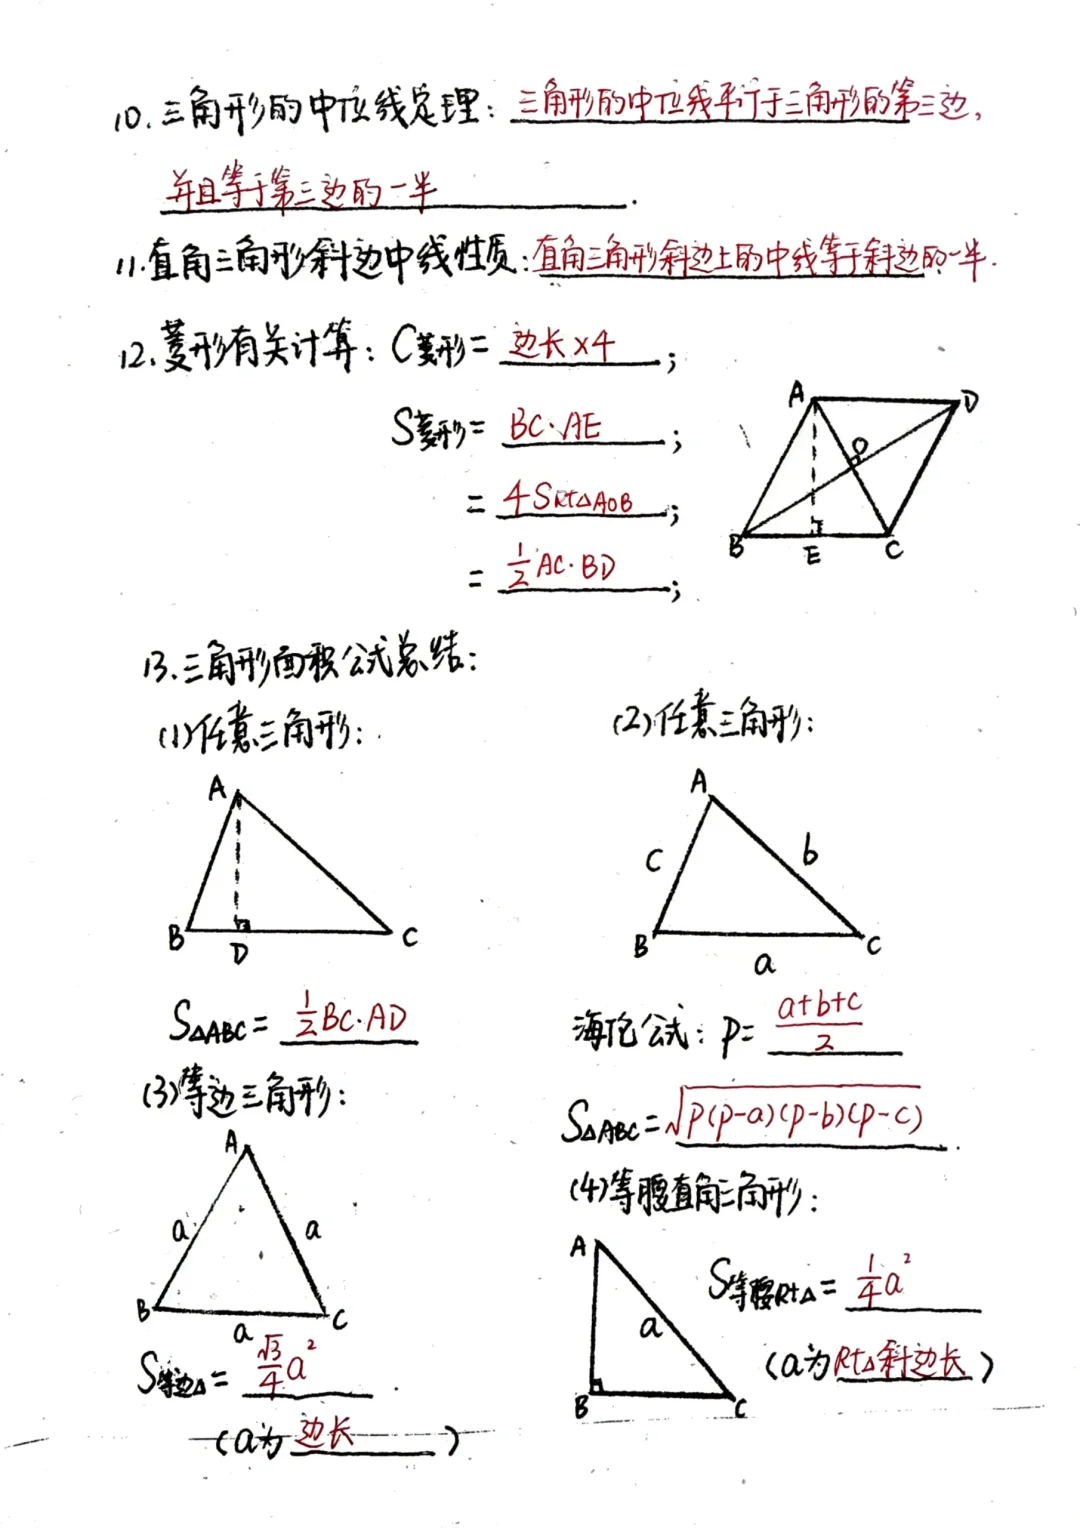 10. 三角形的中位线定理：三角形的中位线平行于三角形的第三边，
并且等于第三边的一半.
11. 直角三角形斜边中线性质：直角三角形斜边上的中线等于斜边的一半.
12. 菱形有关计算：C菱形 = 边长×4；
S菱形 = BC·AE；
= 4SRt△AOB；
= 1/2 AC·BD；
A D
O
B E C
13. 三角形面积公式总结：
(1) 任意三角形：
(2) 任意三角形：
A
B D C
A
c b
B a C
S△ABC = 1/2 BC·AD
海伦公式：p = (a+b+c)/2
(3) 等边三角形：
S△ABC = √p(p-a)(p-b)(p-c) .
A
a a
B a C
(4) 等腰直角三角形：
A
a
B C
S等腰Rt△ = 1/4 a²
(a为Rt△斜边长)
S等边△ = √3/4 a² .
(a为边长)